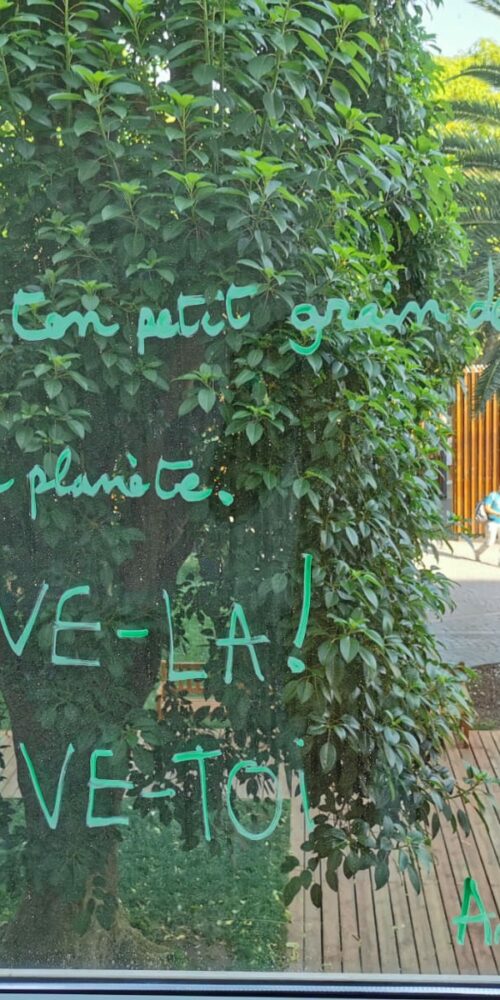 ton petit grain d
planète.
VE-LA!
VE-TOI
A